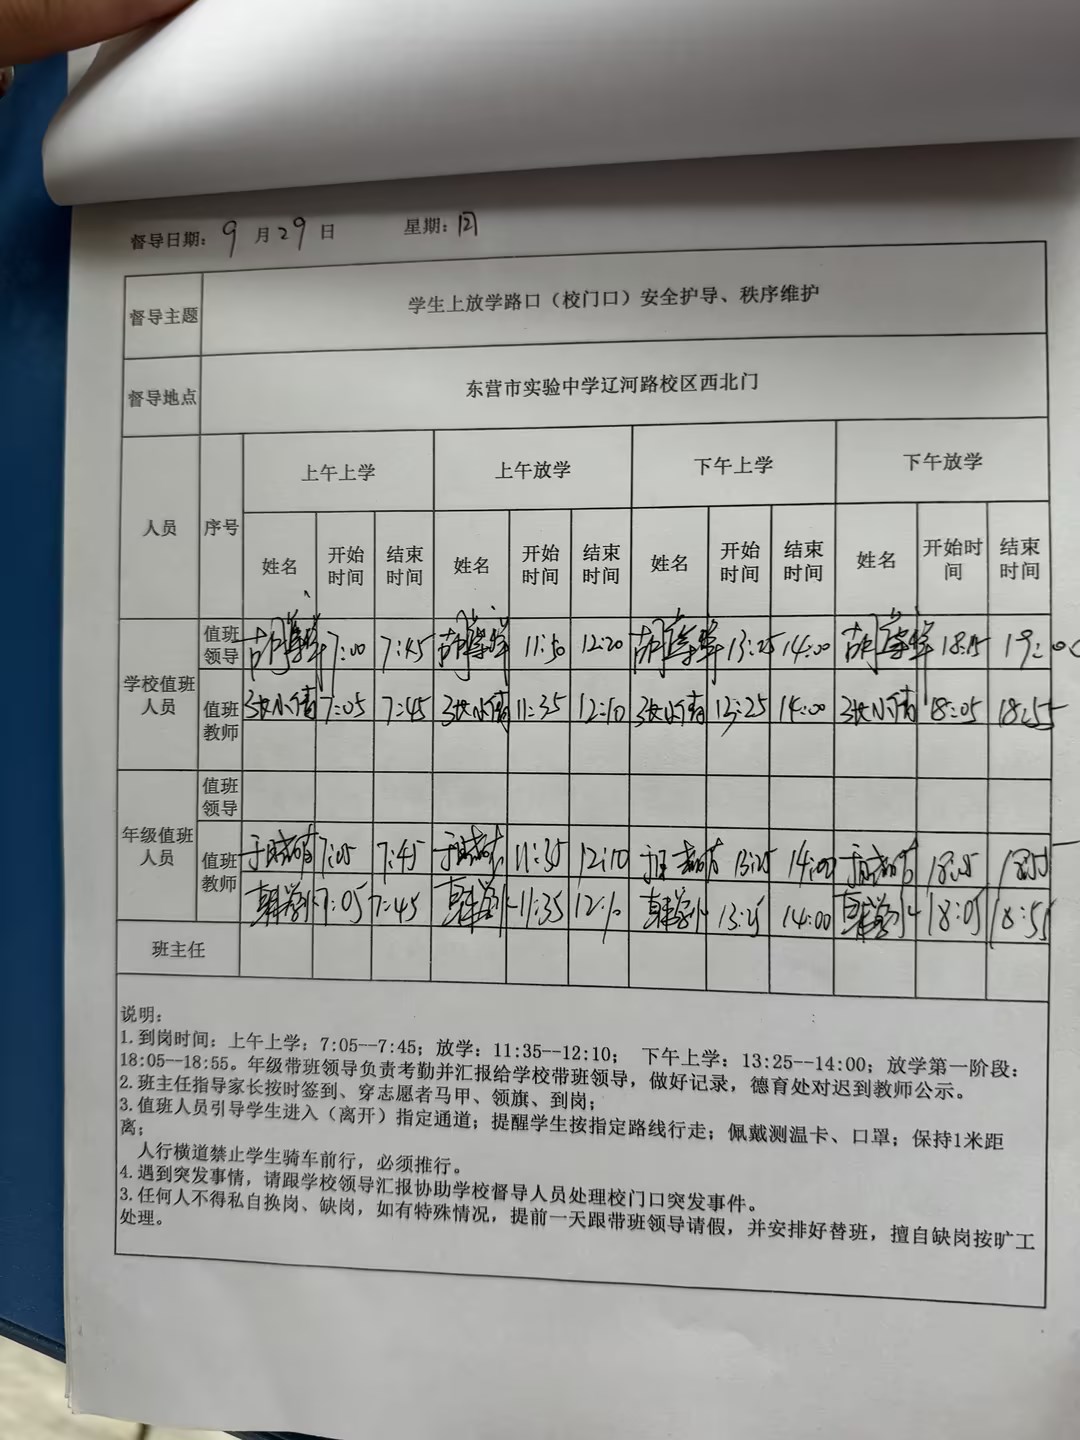 督导日期：9月29日 星期：四
督导主题 学生上放学路口（校门口）安全护导、秩序维护
督导地点 东营市实验中学辽河路校区西北门
人员 序号 上午上学 上午放学 下午上学 下午放学
姓名 开始时间 结束时间 姓名 开始时间 结束时间 姓名 开始时间 结束时间 姓名 开始时间 结束时间
学校值班人员 值班领导 7:00 7:45 11:30 12:20 13:25 14:00 18:15 19:00
值班教师 张小倩 7:05 7:45 张小倩 11:35 12:10 张小倩 13:25 14:00 张小倩 18:05 18:55
年级值班人员 值班领导
值班教师 7:05 7:45 11:35 12:10 13:25 14:00 18:05
7:05 7:45 11:35 12:10 13:25 14:00 18:05 18:55
班主任
说明：
1.到岗时间：上午上学：7:05--7:45；放学：11:35--12:10； 下午上学：13:25--14:00；放学第一阶段：
18:05--18:55。年级带班领导负责考勤并汇报给学校带班领导，做好记录，德育处对迟到教师公示。
2.班主任指导家长按时签到、穿志愿者马甲、领旗、到岗；
3.值班人员引导学生进入（离开）指定通道；提醒学生按指定路线行走；佩戴测温卡、口罩；保持1米距
离；
人行横道禁止学生骑车前行，必须推行。
4.遇到突发事情，请跟学校领导汇报协助学校督导人员处理校门口突发事件。
3.任何人不得私自换岗、缺岗，如有特殊情况，提前一天跟带班领导请假，并安排好替班，擅自缺岗按旷工
处理。